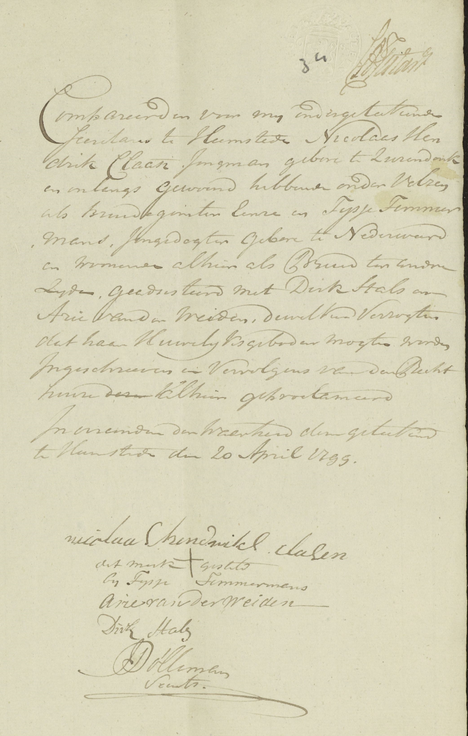 34
Compareerden voor mij ondergeteekende
Secretaris te Heemstede Nicolaas Hen
drik Claase Jongman gebore te
en onlangs gewoond hebbende onder Velzen
als bruidegom ter eenre en Fijtje Timmer
mans, Jongedogter gebore te Nederweerd
en wonende alhier als Bruid ter andere
Zyde, geadsisteerd met Dirk Hals en
Arie van der Weiden, dewelke Verzogten
dat haar Huwelyksgeboden mogten worden
Ingeschreeven en Vervolgens van den Recht
huize alhier geproclameerd
In oirconden der Waarheid deze geteekend
te Heemstede den 20 April 1799.
nicolaas hendrikl clasen
dit merk + gesteld
by Fijtje Timmermans
Arie van der Weiden
Dirk Hals
Dólleman
Secrets.